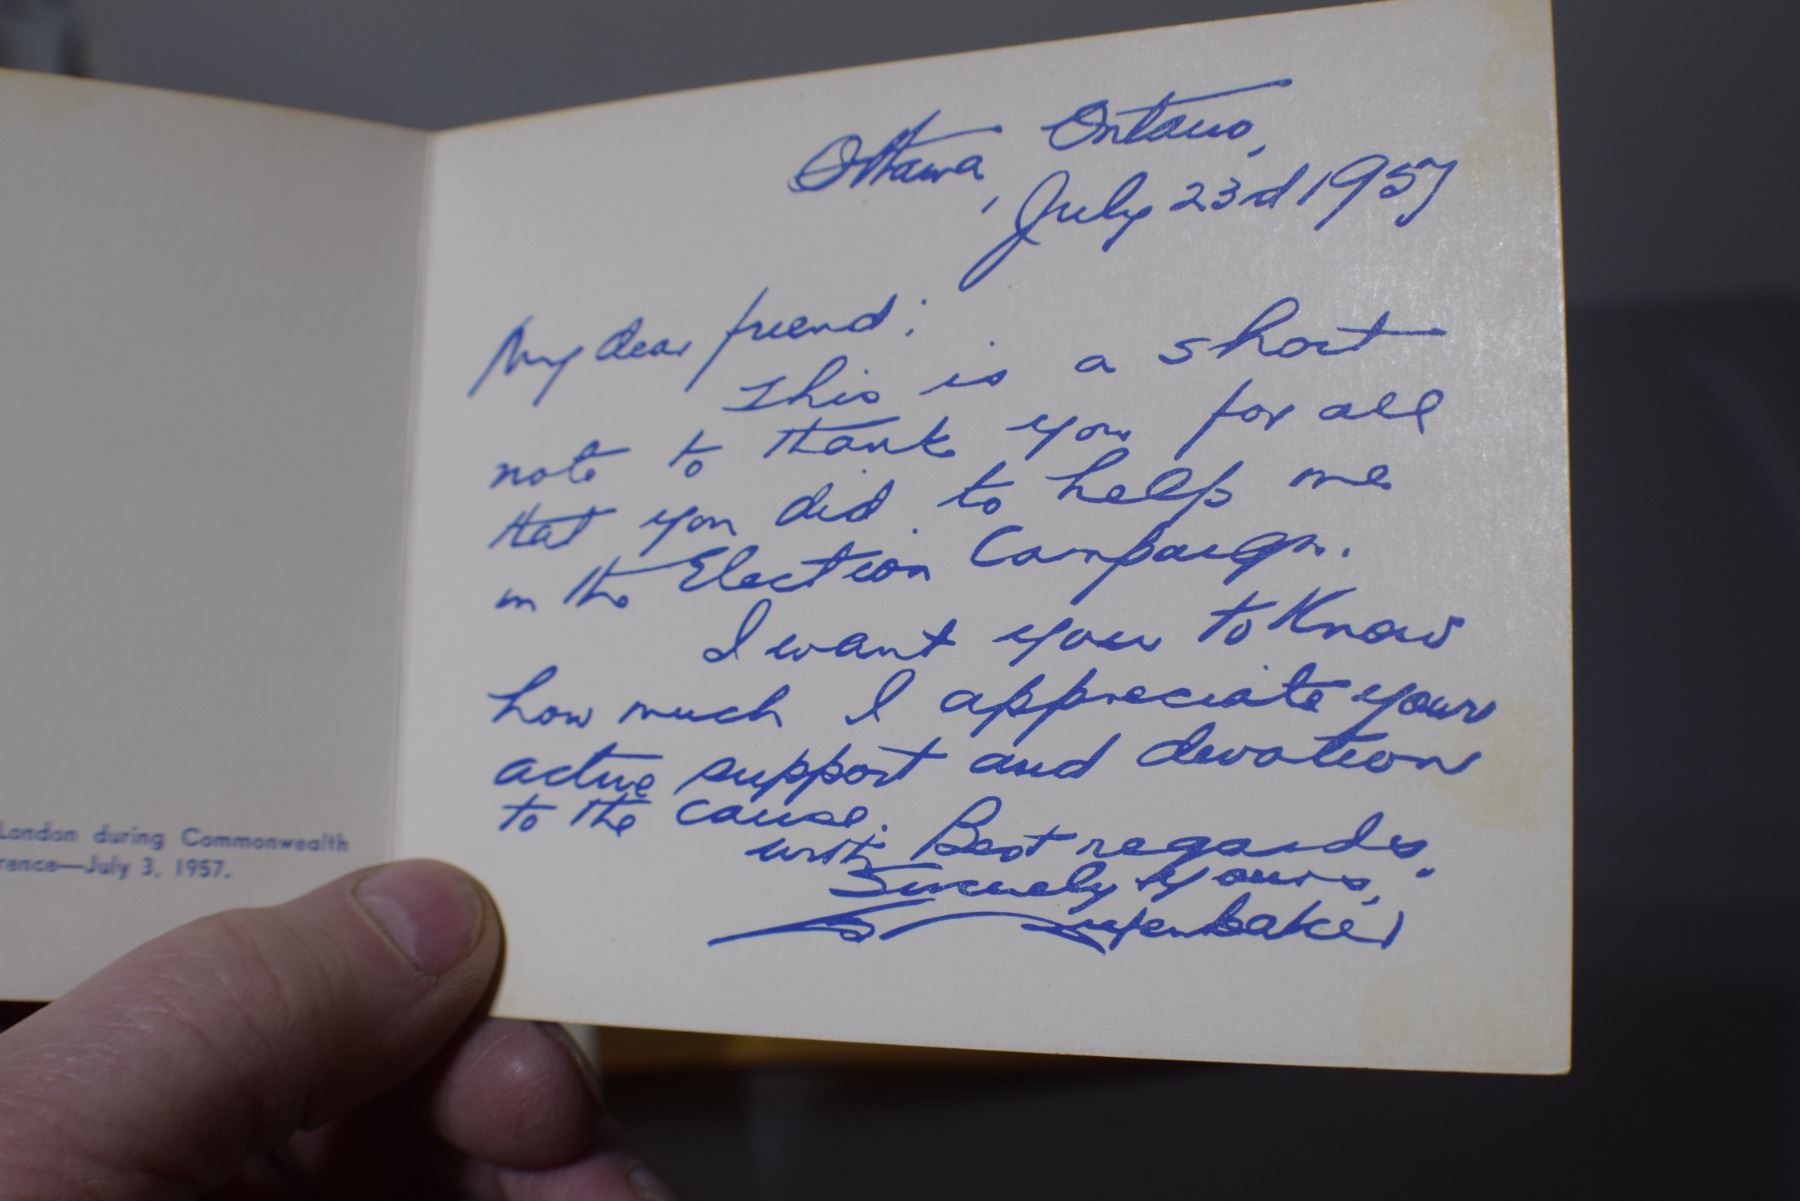 London during Commonwealth
rence—July 3, 1957.
Ottawa, Ontario,
July 23d 1957
My dear friend:
This is a short
note to thank you for all
that you did to help me
in the Election Campaign.
I want you to know
how much I appreciate your
active support and devotion
to the cause.
with Best regards,
Sincerely yours,
Diefenbaker